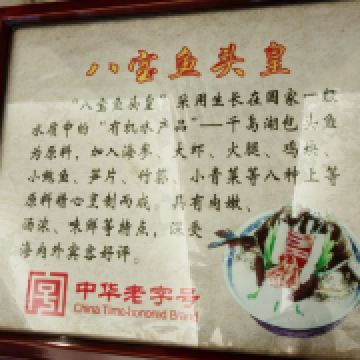 八宝鱼头皇
"八宝鱼头皇"采用生长在国家一级
水质中的"有机水产品"—千岛湖包头鱼
为原料,加入海参、大虾、火腿、鸡块、
小鲍鱼、笋片、竹荪、小青菜等八种上等
原料精心烹制而成。具有肉嫩、
汤浓、味鲜等特点,深受
海内外宾客好评。
中华老字号
China Time-honored Brand